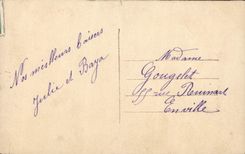 Nos meilleurs baisers
Julie et Baya
Madame
Gougelet
rue
En ville